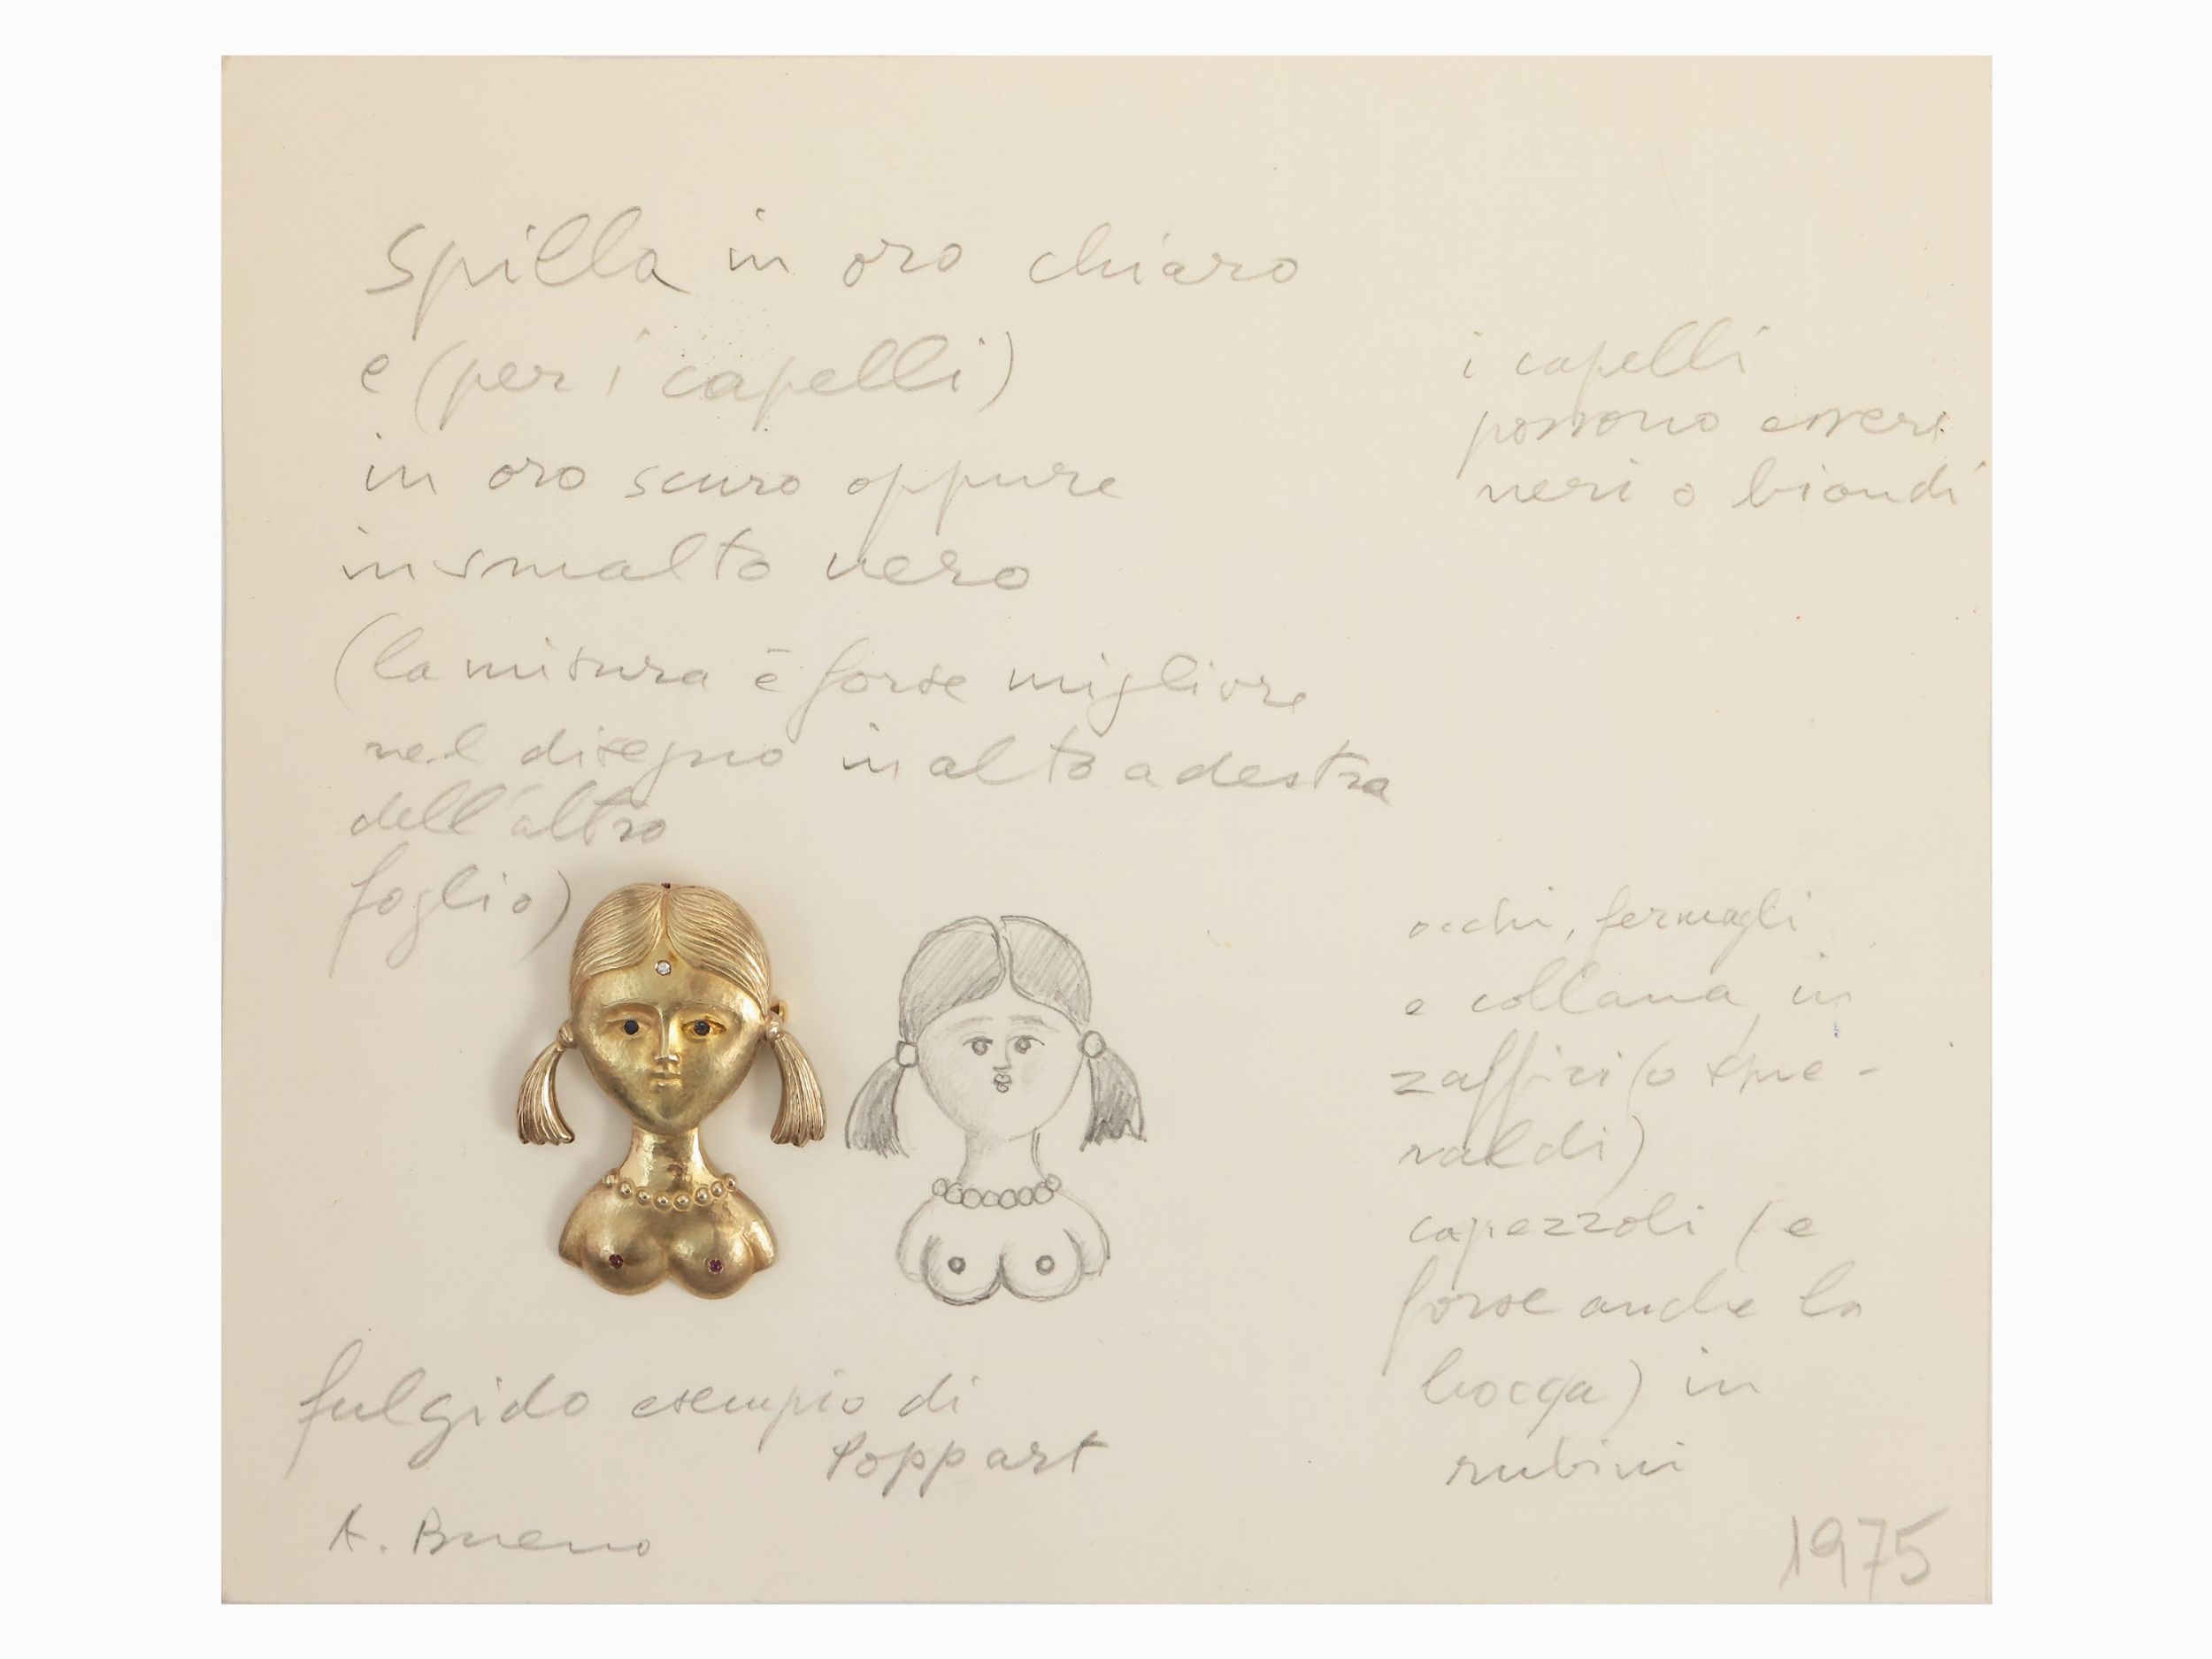 Spilla in oro chiaro
e (per i capelli)
in oro scuro oppure
in smalto nero
(la misura è forse migliore
nel disegno in alto a destra
dell'altro
foglio)
i capelli
possono essere
neri o biondi
occhi, fermagli
e collana in
zaffiri (o sme-
raldi)
capezzoli (e
forse anche la
bocca) in
rubini
fulgido esempio di
Popp art
A. Bueno
1975